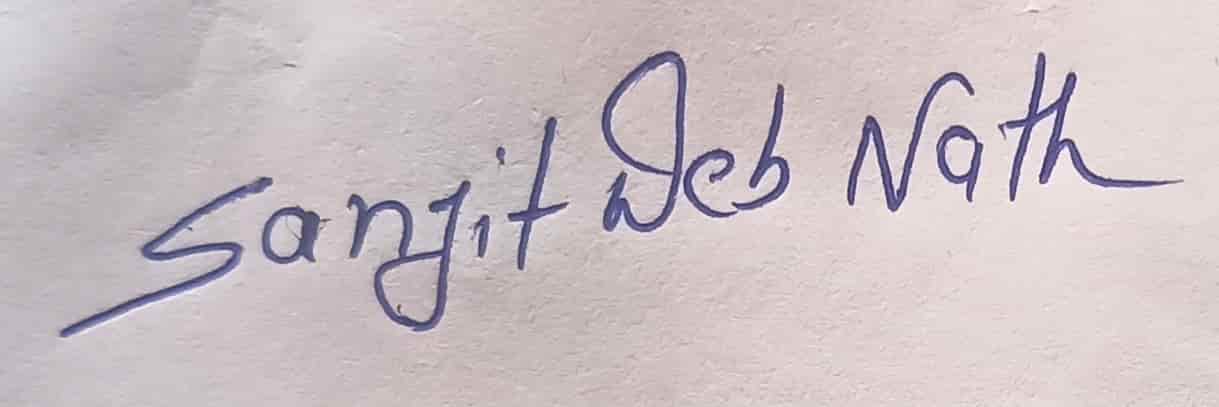 Sanjit Deb Nath